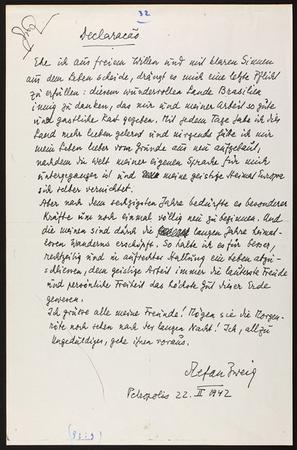 32
Declaracão
Ehe ich aus freiem Willen und mit klaren Sinnen
aus dem Leben scheide, drängt es mich eine letzte Pflicht
zu erfüllen: diesem wundervollen Lande Brasilien
innig zu danken, das mir und meiner Arbeit so gute
und gastliche Rast gegeben. Mit jedem Tage habe ich dies
Land mehr lieben gelernt und nirgends hätte ich mir
mein Leben lieber vom Grunde aus neu aufgebaut,
nachdem die Welt meiner eigenen Sprache für mich
untergegangen ist und meine geistige Heimat Europa
sich selber vernichtet.
Aber nach dem sechzigsten Jahre bedürfte es besonderer
Kräfte um noch einmal völlig neu zu beginnen. Und
die meinen sind durch die langen Jahre heimat-
losen Wanderns erschöpft. So halte ich es für besser,
rechtzeitig und in aufrechter Haltung ein Leben abzu-
schliessen, dem geistige Arbeit immer die lauterste Freude
und persönliche Freiheit das höchste Gut dieser Erde
gewesen.
Ich grüsse alle meine Freunde! Mögen sie die Morgen-
röte noch sehen nach der langen Nacht! Ich, allzu
Ungeduldiger, gehe ihnen voraus.
Stefan Zweig
Petropolis 22. II 1942